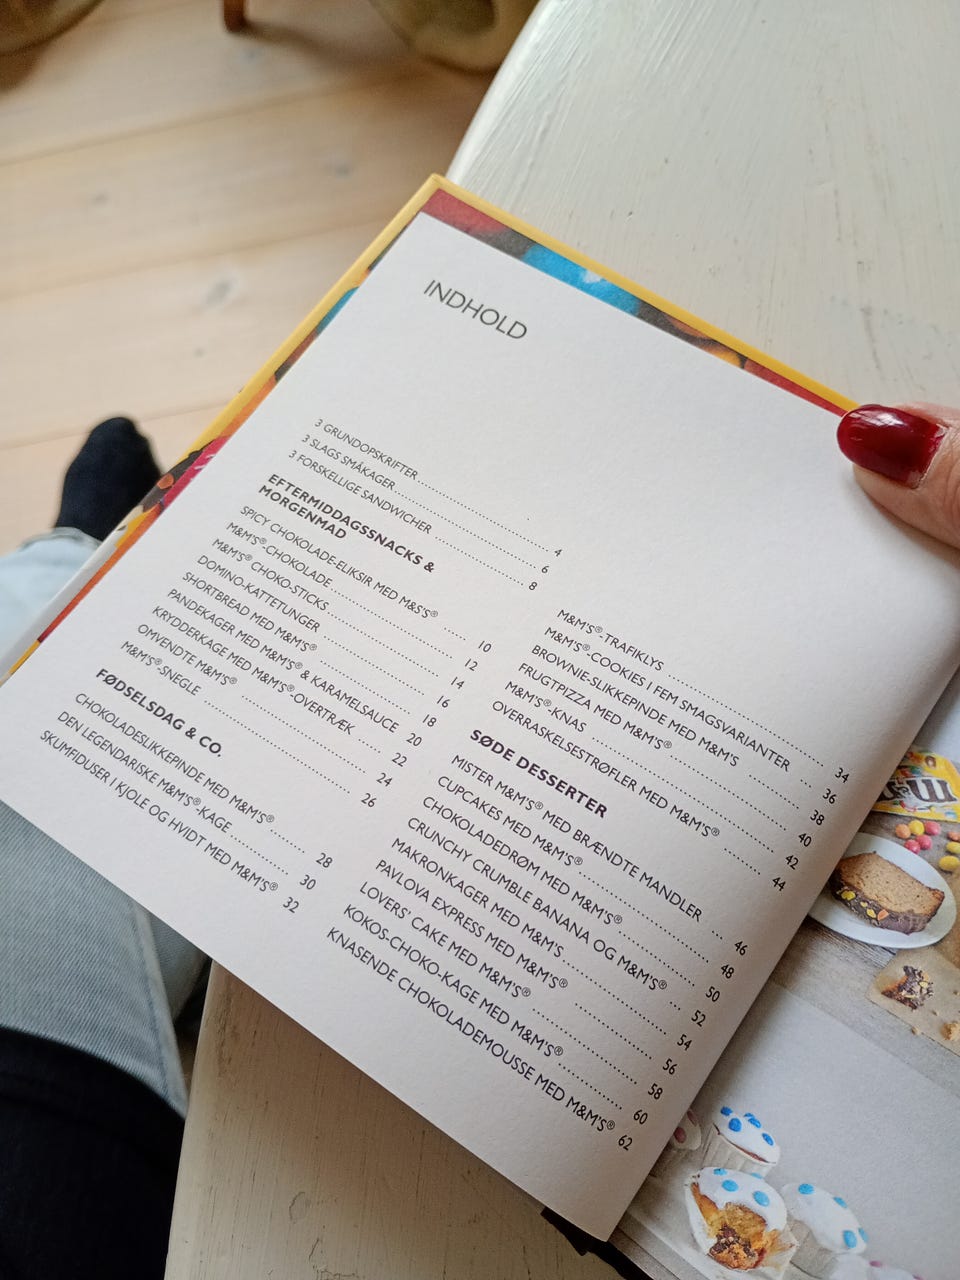 INDHOLD
3 GRUNDOPSKRIFTER 4
3 SLAGS SMÅKAGER 6
3 FORSKELLIGE SANDWICHER 8
EFTERMIDDAGSSNACKS &
MORGENMAD
SPICY CHOKOLADE-ELIKSIR MED M&S'S® 10
M&M'S®-CHOKOLADE 12
M&M'S® CHOKO-STICKS 14
DOMINO-KATTETUNGER 16
SHORTBREAD MED M&M'S® 18
PANDEKAGER MED M&M'S® & KARAMELSAUCE 20
KRYDDERKAGE MED M&M'S®-OVERTRÆK 22
OMVENDTE M&M'S® 24
M&M'S®-SNEGLE 26
FØDSELSDAG & CO.
CHOKOLADESLIKKEPINDE MED M&M'S® 28
DEN LEGENDARISKE M&M'S®-KAGE 30
SKUMFIDUSER I KJOLE OG HVIDT MED M&M'S® 32
M&M'S®-TRAFIKLYS 34
M&M'S®-COOKIES I FEM SMAGSVARIANTER 36
BROWNIE-SLIKKEPINDE MED M&M'S 38
FRUGTPIZZA MED M&M'S® 40
M&M'S®-KNAS 42
OVERRASKELSESTRØFLER MED M&M'S® 44
SØDE DESSERTER
MISTER M&M'S® MED BRÆNDTE MANDLER 46
CUPCAKES MED M&M'S® 48
CHOKOLADEDRØM MED M&M'S® 50
CRUNCHY CRUMBLE BANANA OG M&M'S® 52
MAKRONKAGER MED M&M'S 54
PAVLOVA EXPRESS MED M&M'S® 56
LOVERS' CAKE MED M&M'S® 58
KOKOS-CHOKO-KAGE MED M&M'S® 60
KNASENDE CHOKOLADEMOUSSE MED M&M'S® 62
m&m's